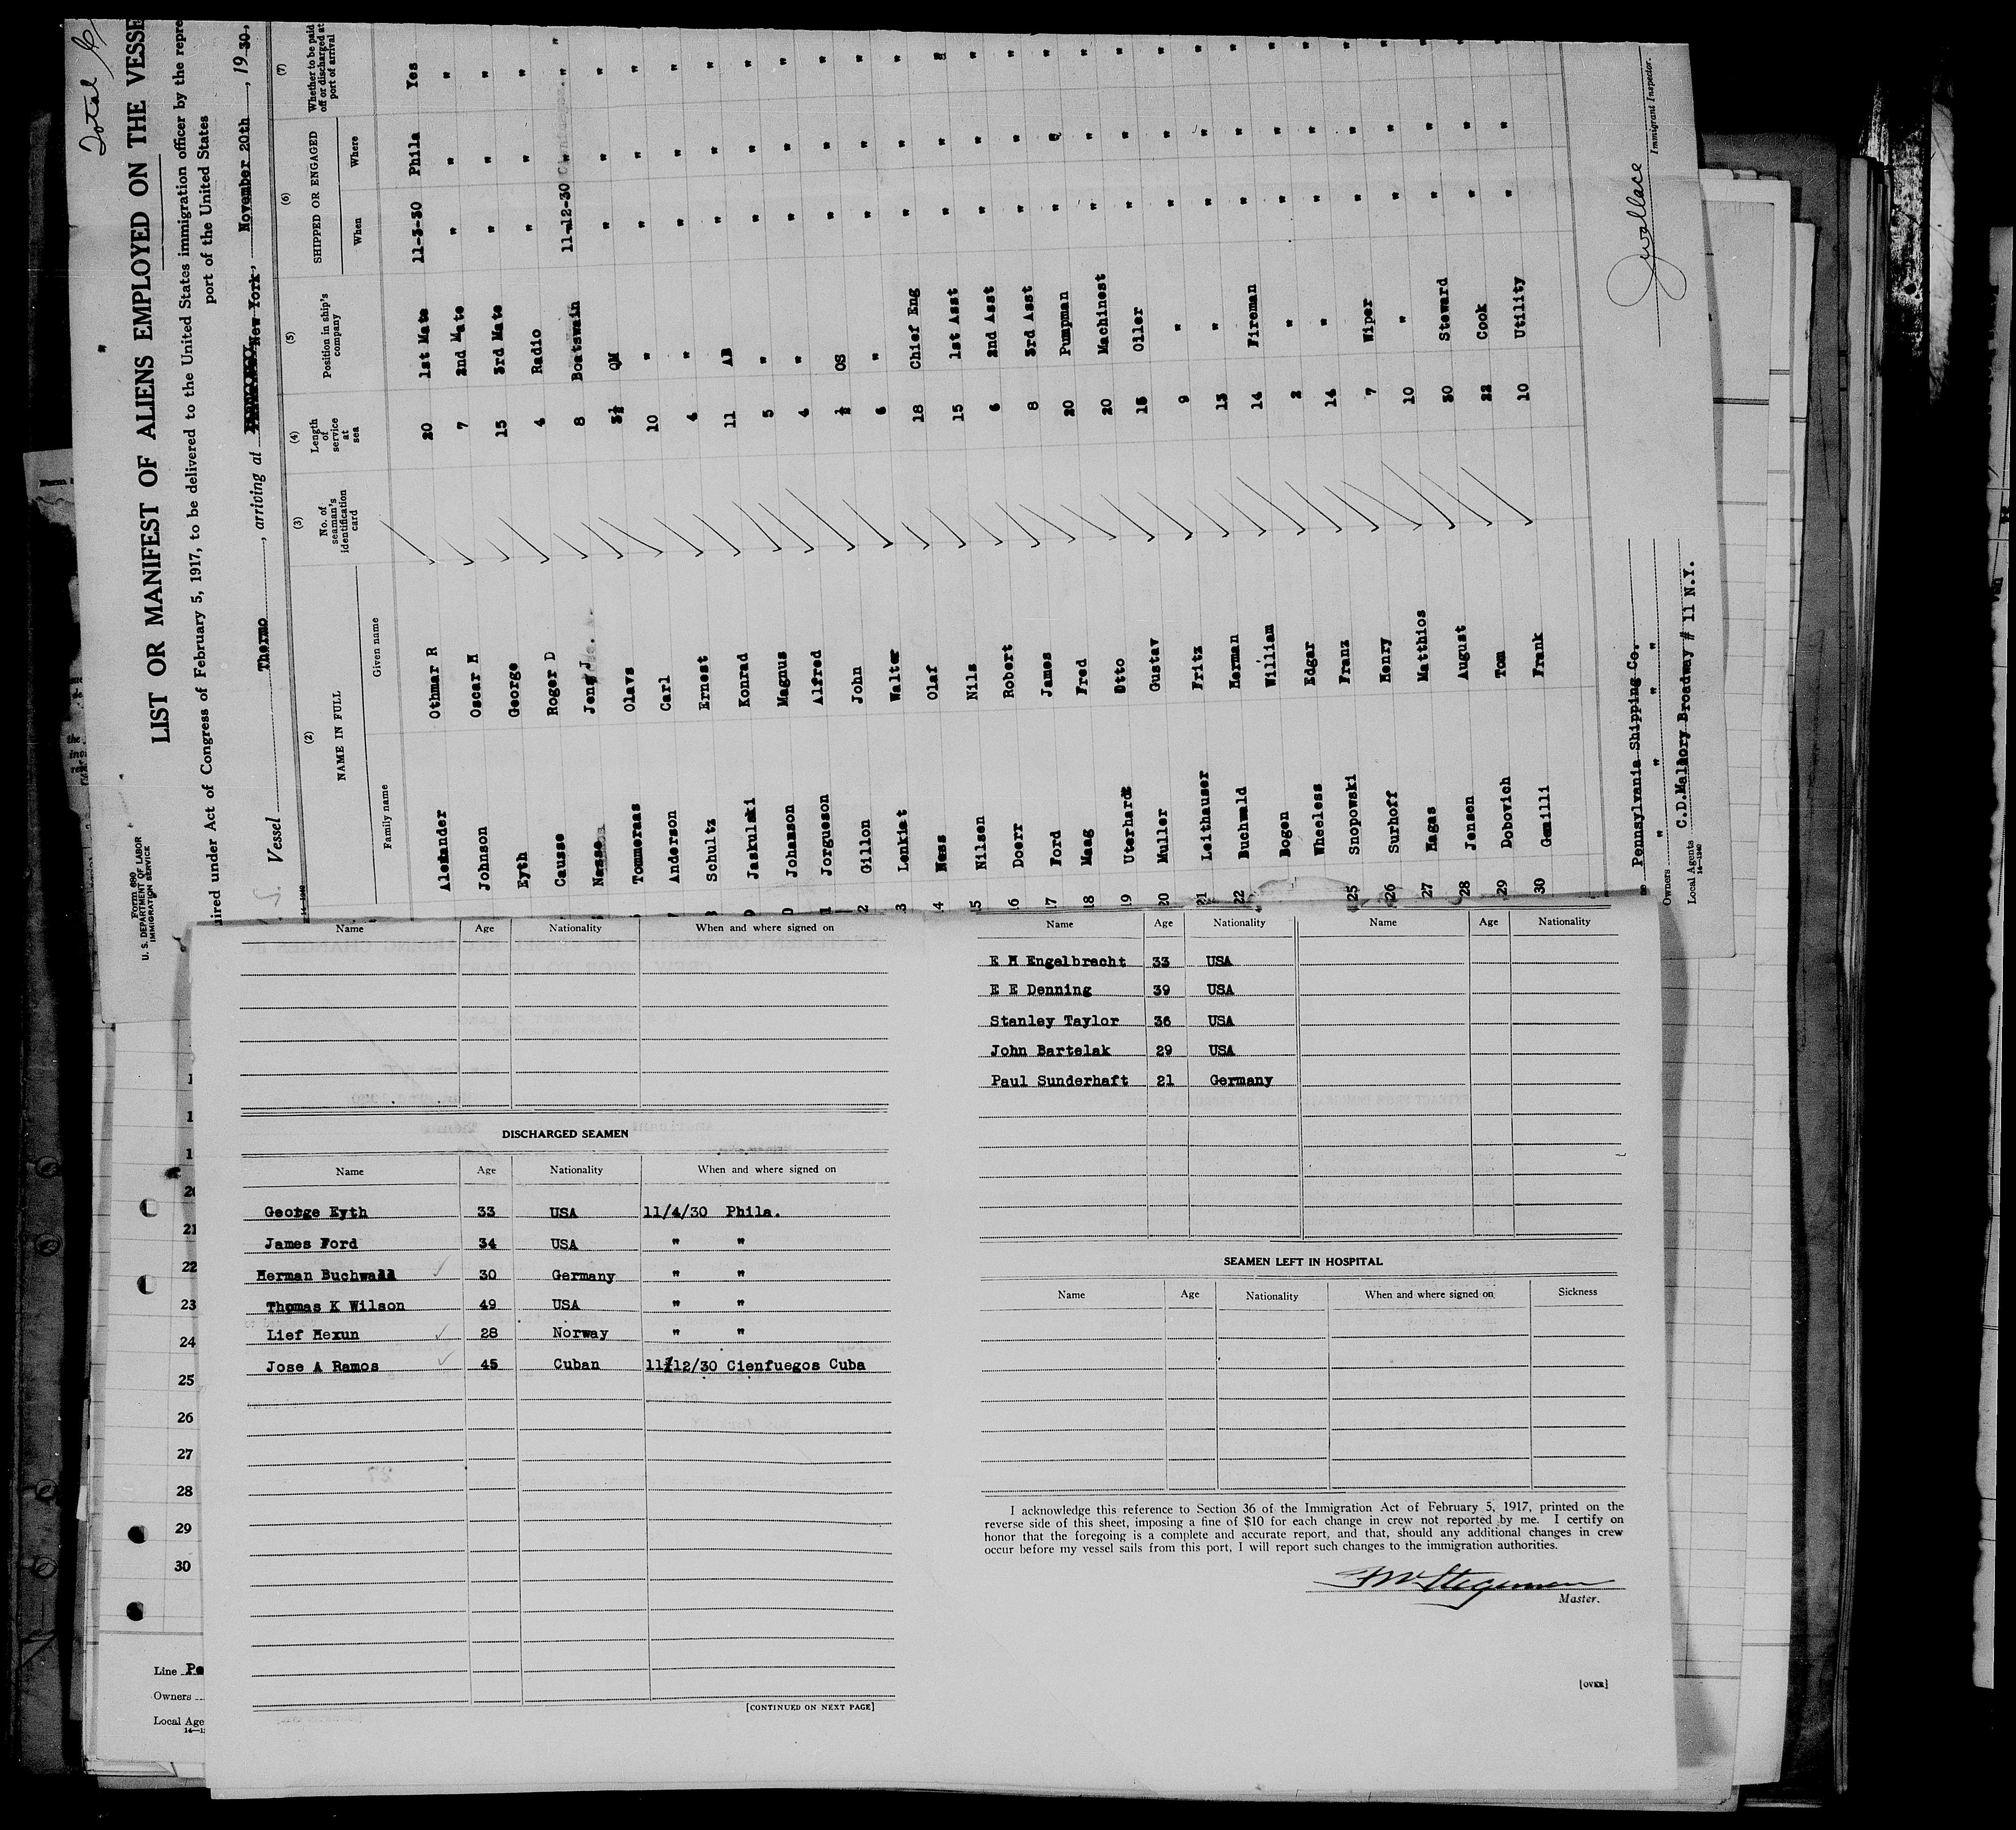 Total
Form 680
U. S. DEPARTMENT OF LABOR
IMMIGRATION SERVICE
LIST OR MANIFEST OF ALIENS EMPLOYED ON THE VESSE
uired under Act of Congress of February 5, 1917, to be delivered to the United States immigration officer by the repre
port of the United States
Vessel Thermo , arriving at New York, November 20th , 19 30,
(2) (3) (4) (5) (6) (7)
NAME IN FULL No. of seaman's identification card Length of service at sea Position in ship's company SHIPPED OR ENGAGED Whether to be paid off or discharged at port of arrival
Family name Given name When Where
Alexander Othmar R 20 1st Mate 11-3-30 Phila Yes
Johnson Oscar M 7 2nd Mate " " "
Eyth George 15 3rd Mate " " "
Causse Roger D 4 Radio " " "
Nasse Jens J 8 Boatswain 11-12-30 " "
Tommeraas Olavs 3½ QM " " "
Anderson Carl 10 " " " "
8 Schultz Ernest 4 " " " "
9 Jaskulski Konrad 11 AB " " "
0 Johanson Magnus 5 " " " "
1 Jorgueson Alfred 4 " " " "
2 Gillon John ½ OS " " "
3 Lenkiet Walter 6 " " " "
4 Ness Olaf 18 Chief Eng " " "
15 Nilsen Nils 15 1st Asst " " "
16 Doerr Robert 6 2nd Asst " " "
17 Ford James 8 3rd Asst " " "
18 Maag Fred 20 Pumpman " " "
19 Uterhardt Otto 20 Machinest " " "
20 Muller Gustav 15 Oiler " " "
21 Leithauser Fritz 9 " " " "
22 Buchwald Herman 13 " " " "
Bogen William 14 Fireman " " "
Wheeless Edgar 2 " " " "
25 Snopowski Franz 14 " " " "
26 Surhoff Henry 7 Wiper " " "
27 Magas Matthios 10 " " " "
28 Jensen August 30 Steward " " "
29 Dobovich Tom 22 Cook " " "
30 Gemilli Frank 10 Utility " " "
Pennsylvania Shipping Co.
Owners " " " "
Local Agents C.D.Mallory Broadway # 11 N.Y.
14-1240
JWallace
Immigrant Inspector.
Name Age Nationality When and where signed on
DISCHARGED SEAMEN
Name Age Nationality When and where signed on
George Eyth 33 USA 11/4/30 Phila.
James Ford 34 USA " "
Herman Buchwald 30 Germany " "
Thomas K Wilson 49 USA " "
Lief Hexun 28 Norway " "
Jose A Ramos 45 Cuban 11/12/30 Cienfuegos Cuba
[CONTINUED ON NEXT PAGE]
Name Age Nationality Name Age Nationality
E H Engelbrecht 33 USA
E E Denning 39 USA
Stanley Taylor 36 USA
John Bartelak 29 USA
Paul Sunderhaft 21 Germany
SEAMEN LEFT IN HOSPITAL
Name Age Nationality When and where signed on Sickness
I acknowledge this reference to Section 36 of the Immigration Act of February 5, 1917, printed on the
reverse side of this sheet, imposing a fine of $10 for each change in crew not reported by me. I certify on
honor that the foregoing is a complete and accurate report, and that, should any additional changes in crew
occur before my vessel sails from this port, I will report such changes to the immigration authorities.
Stegeman
Master.
[OVER]
20
21
22
23
24
25
26
27
28
29
30
Line Pe
Owners
Local Age